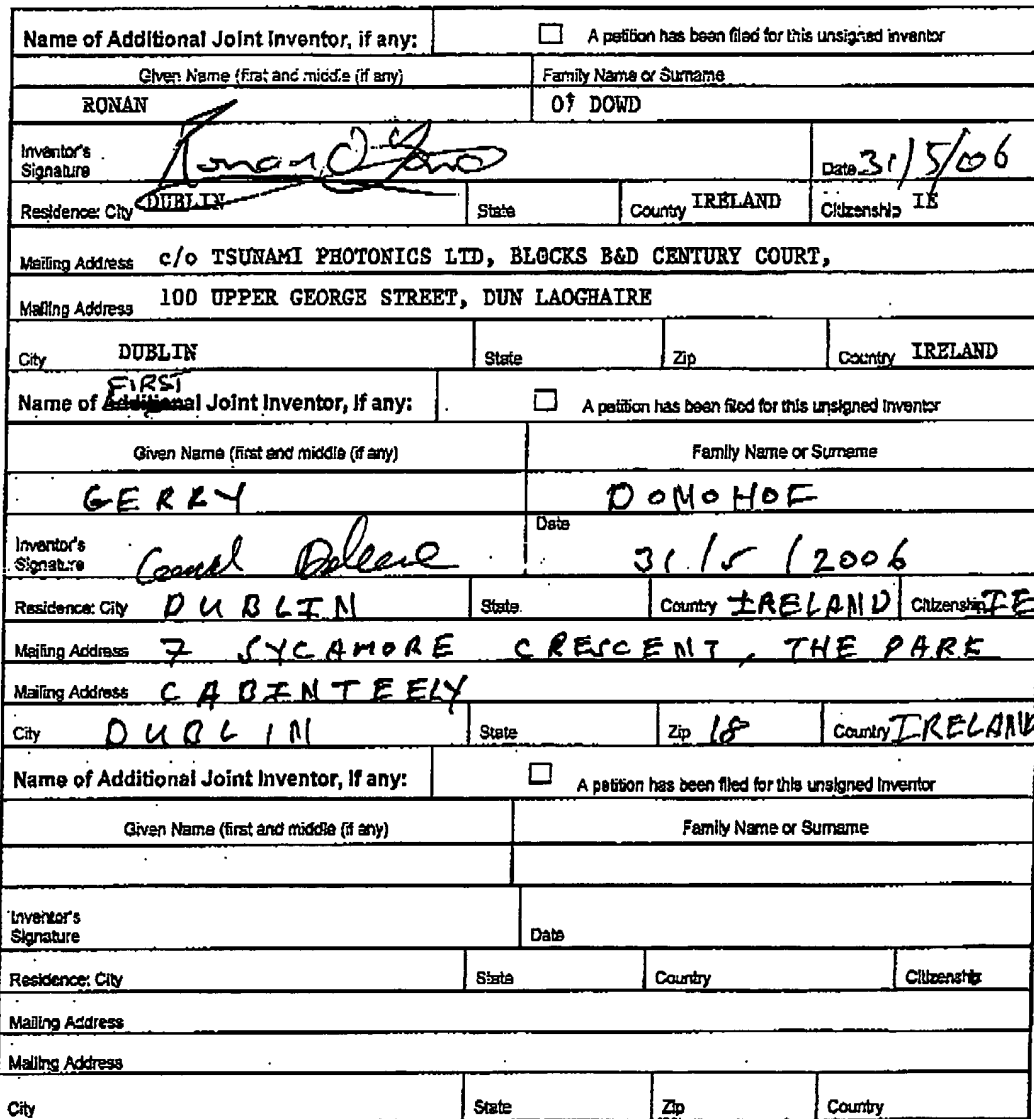 Name of Additional Joint Inventor, if any: A petition has been filed for this unsigned inventor
Given Name (first and middle (if any) Family Name or Surname
RONAN O' DOWD
Inventor's
Signature Date 31/5/06
Residence: City DUBLIN State Country IRELAND Citizenship IE
Mailing Address c/o TSUNAMI PHOTONICS LTD, BLOCKS B&D CENTURY COURT,
Mailing Address 100 UPPER GEORGE STREET, DUN LAOGHAIRE
City DUBLIN State Zip Country IRELAND
FIRST
Name of Additional Joint Inventor, if any: A petition has been filed for this unsigned inventor
Given Name (first and middle (if any) Family Name or Surname
GERRY DOMOHOE
Date
Inventor's
Signature 31/5/2006
Residence: City DUBLIN State Country IRELAND Citizenship IE
Mailing Address 7 SYCAMORE CRESCENT, THE PARK
Mailing Address CABINTEELY
City DUBLIN State Zip 18 Country IRELAND
Name of Additional Joint Inventor, if any: A petition has been filed for this unsigned inventor
Given Name (first and middle (if any) Family Name or Surname
Inventor's
Signature Date
Residence: City State Country Citizenship
Mailing Address
Mailing Address
City State Zip Country